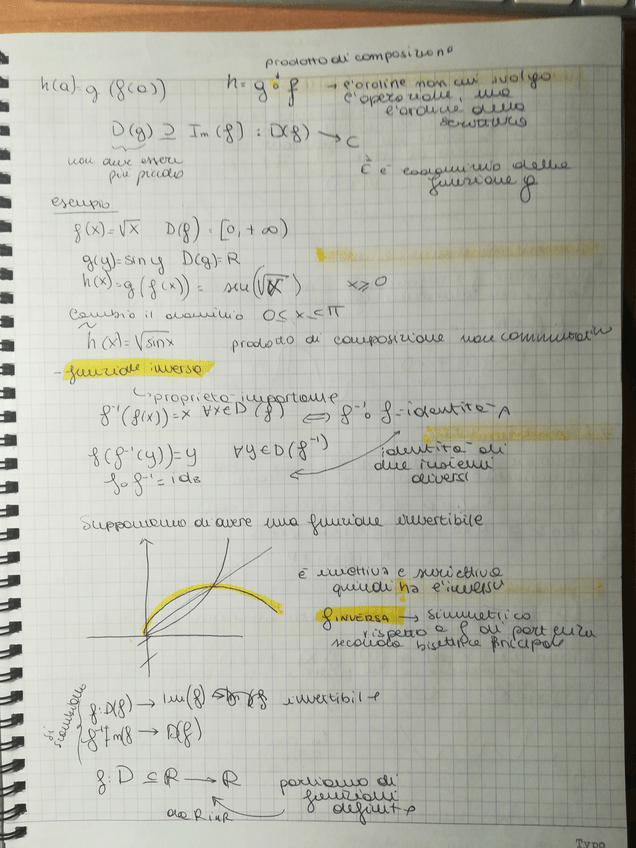 prodotto di composizione
h(a)=g(f(a))   h= g∘f → l'ordine non cui svolgo
l'operazione, ma
l'ordine della
scrittura
D(g) ⊇ Im(f) : D(f) → C
non deve essere
più piccolo
C è codominio della
funzione g
esempio
f(x)=√x   D(f) : [0,+∞)
g(y)=sin y   D(g)=R
h(x)=g(f(x)) = sen(√x)   x⩾0
Cambio il dominio 0≤x≤π
h̃(x)=√sinx   prodotto di composizione non commutativo
- funzione inversa
↳ proprietà importante
f⁻¹(f(x))=x ∀x∈D(f) ⟺ f⁻¹∘f=identità A
f(f⁻¹(y))=y   ∀y∈D(f⁻¹)
identità di
due insiemi
diversi
f∘f⁻¹=id
Supponiamo di avere una funzione invertibile
è iniettiva e suriettiva
quindi ha l'inversa
f INVERSA → simmetrico
rispetto a f di partenza
secondo bisettrice principale
si scambiano
f:D(f) → Im(f) invertibile
f⁻¹Imf → D(f)
f: D ⊆ R → R   parliamo di
funzioni
definite
da R in R
Typo